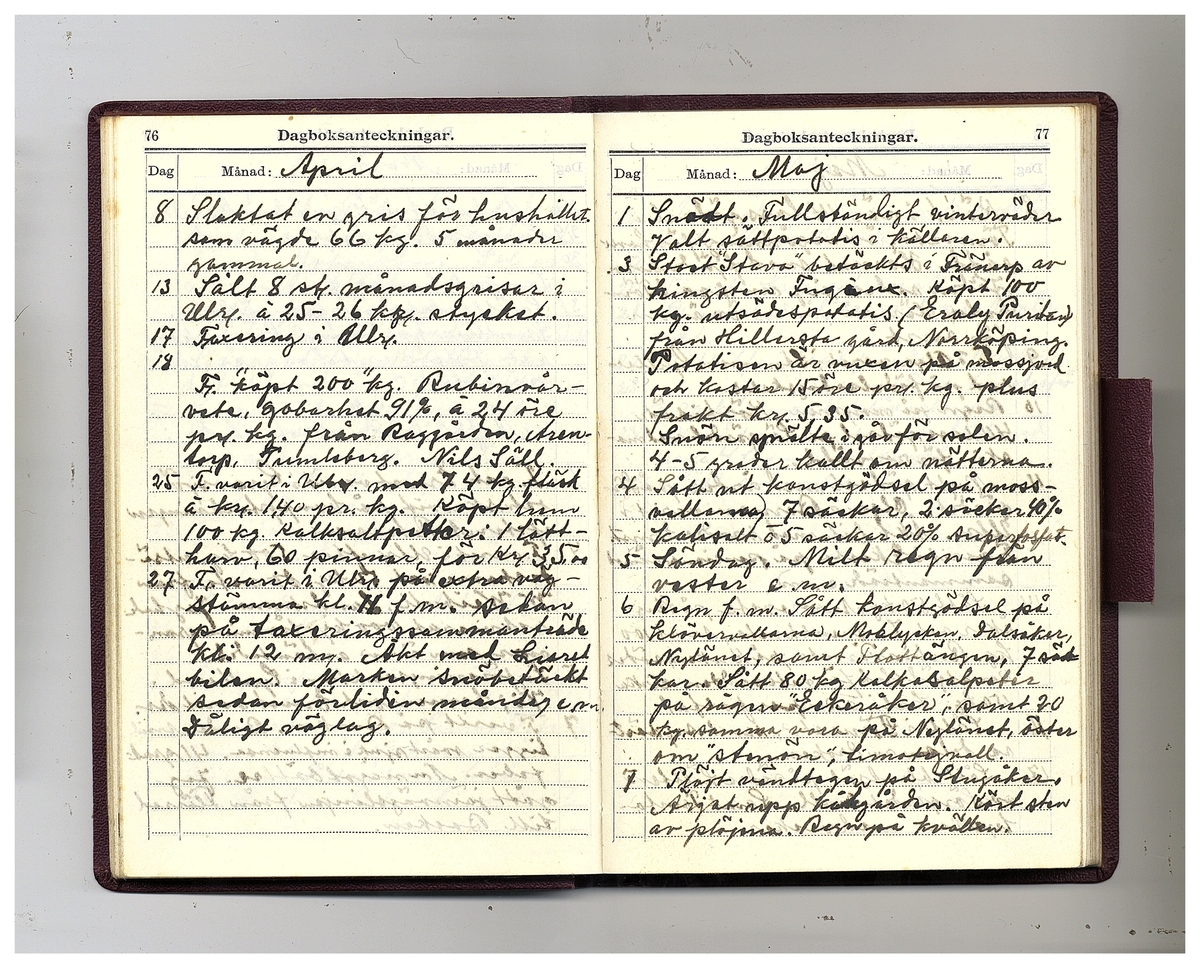 76
Dagboksanteckningar.
Dag Månad: April
8 Slaktat en gris för hushållet
som vägde 66 kg. 5 månader
gammal.
13 Sålt 8 st. månadsgrisar i
Ulr. à 25-26 kr. stycket.
17 Taxering i Ulr.
18
Fr. köpt 200 kg. Rubinvår-
vete, grobarhet 91%, à 24 öre
pr. kg. från Baggården, Aren-
torp, Tumleberg. Nils Säll.
25 F. varit i Ulr. med 74 kg. fläsk
à kr. 1,40 pr. kg. Köpt hem
100 kg kalksalpeter. 1 lätt-
harv, 60 pinnar, för kr. 35.00
27 F. varit i Ulr. på extra väg-
stämma kl. 11 f.m. sedan
på taxeringssammanträde
kl. 12 m. Åkt med
bilen. Marken snöbetäckt
sedan förliden måndag e.m.
Dåligt väglag.
77
Dagboksanteckningar.
Dag Månad: Maj
1 Snött. Fullständigt vinterväder
Valt sättpotatis i källaren.
3 Stoet "Stava" betäckts i Tränorp av
hingsten Köpt 100
kg. utsädespotatis (Eraly Puritan)
från Hillersta gård, Norrköping.
Potatisen är vuxen på mossjord
och kostar 15 öre pr. kg. plus
frakt kr. 5,35.
Snön smälte i går för solen.
4-5 grader kallt om nätterna.
4 Sått ut konstgödsel på moss-
vallarna, 7 säckar, 2 säckar 40%
kalisalt o 5 säckar 20% superfosfat.
5 Söndag. Milt regn från
vester e.m.
6 Regn f.m. Sått konstgödsel på
klövervallarna, Moblyckan, Dalsåker,
Nylänet, samt Flottängen, 7 säc
kar. Sått 80 kg kalksalpeter
på rågen "Ekeråker", samt 20
kg. samma vara på Nylänet, öster
om "stenön", timotejvall.
7 Plöjt vändtegen på Stugåker.
Ärjat upp kålgården. Kört sten
av plöjena. Regn på kvällen.